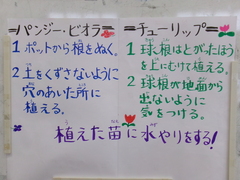 =パンジー・ビオラ=
1 ポットから植をぬく。
2 土をくずさないように
穴のあいた所に
植える。
=チューリップ=
1 球根はとがったほう
を上にむけて植える。
2 球根が地面から
出ないように
気をつける。
植えた苗に水やりをする!